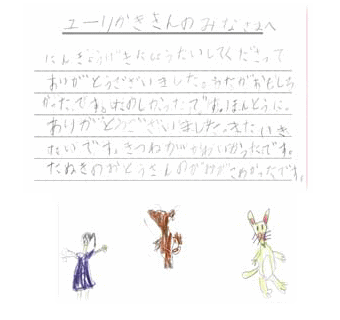 ユーリかきさんのみなさまへ
にんぎょうげきにしょうたいしてくださって
ありがとうございました。うたがおもしろ
かったです。たのしかったです。ほんとうに。
ありがとうございました。またいき
たいです。きつねがかわいかったです。
たぬきのおとうさんのがこわかったです。